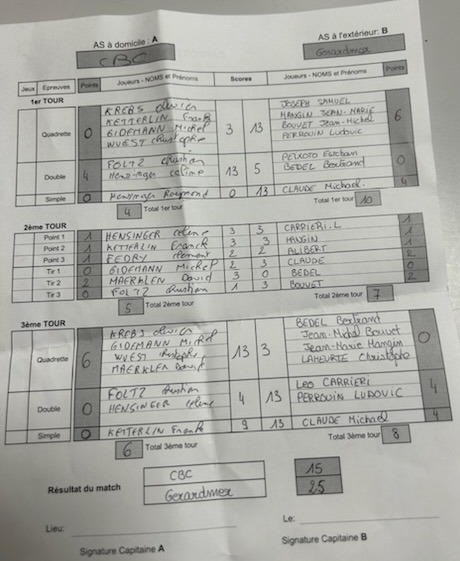 AS à domicile : A AS à l'extérieur: B
CBC Gerardmer
Jeux Epreuves Points Joueurs - NOMS et Prénoms Scores Joueurs - NOMS et Prénoms Points
1er TOUR
Quadrette 0 KREBS 3 13 JOSEPH SAMUEL 6
KETTERLIN Franck MANGIN JEAN-MARIE
GIDEMANN Michel BOUVET Jean-Michel
WUEST Christophe PERROUIN Ludovic
Double 4 FOLTZ 13 5 PEIXOTO Esteban 0
Hensinger celine BEDEL Bertrand
Simple 0 Hensinger Raymond 0 13 CLAUDE Michael. 4
4 Total 1er tour Total 1er tour 10
2ème TOUR
Point 1 1 HENSINGER Celine 3 3 CARRIERI.L 1
Point 2 1 KETTERLIN Franck 3 3 MANGIN 1
Point 3 1 FEDRY clement 2 2 ALIBERT 1
Tir 1 0 GIDEMANN Michel 2 3 CLAUDE 2
Tir 2 2 MAERKLEN David 3 0 BEDEL 0
Tir 3 0 FOLTZ 1 3 BOUVET 2
5 Total 2ème tour Total 2ème tour 7
3ème TOUR
Quadrette 6 KREBS 13 3 BEDEL Bertrand 0
GIDEMANN Michel Jean-Michel Bouvet
WUEST Christophe Jean-Marie Mangin
MAERKLEN David LAHEURTE Christophe
Double 0 FOLTZ 4 13 Leo CARRIERI 4
HENSINGER Celine PERROUIN LUDOVIC
Simple 0 KETTERLIN Franck 9 13 CLAUDE Michael 4
6 Total 3ème tour Total 3ème tour 8
Résultat du match CBC 15
Gerardmer 25
Lieu: Le:
Signature Capitaine A Signature Capitaine B